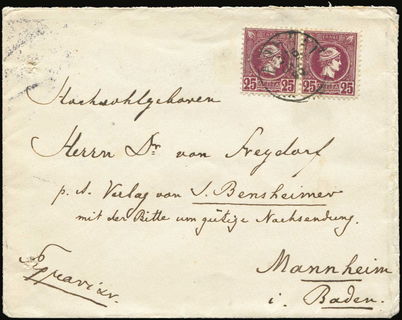 25 25 25 25
Hochwohlgeboren
Herrn Dr von Freydorf
p. A. Verlag von J. Bensheimer
mit der Bitte um gütige Nachsendung.
Mannheim
i. Baden.